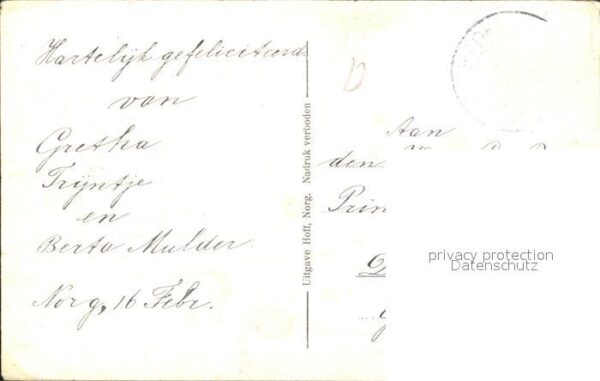 Hartelijk gefeliciteerd
van
Gretha
Trijntje
en
Berta Mulder.
Norg, 16 Febr.
Uitgave Hoff, Norg. Nadruk verboden
Aan
den
Prin
privacy protection
Datenschutz